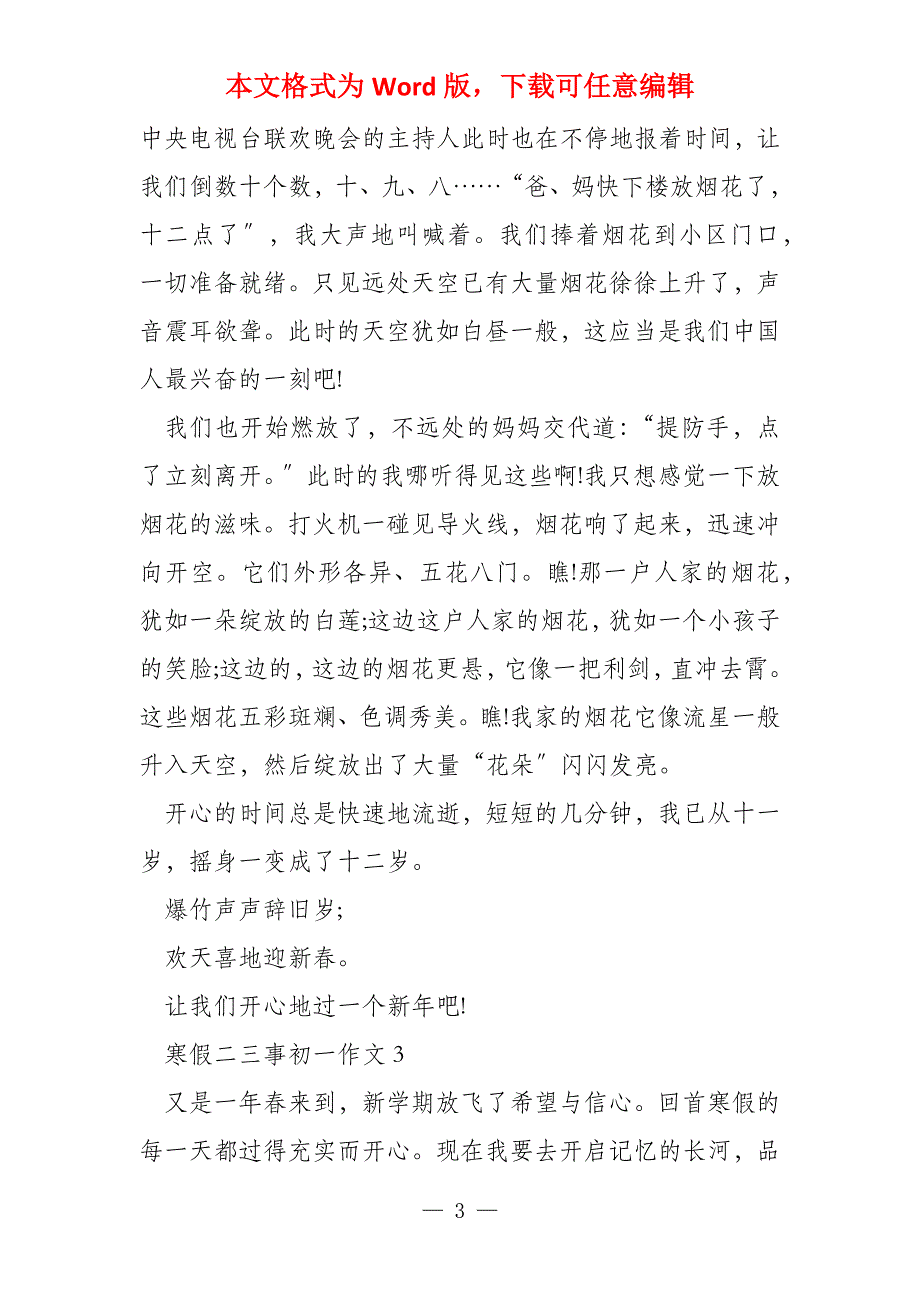 本文格式为 Word 版，下载可任意编辑
中央电视台联欢晚会的主持人此时也在不停地报着时间，让
我们倒数十个数，十、九、八……“爸、妈快下楼放烟花了，
十二点了〞，我大声地叫喊着。我们捧着烟花到小区门口，
一切准备就绪。只见远处天空已有大量烟花徐徐上升了，声
音震耳欲聋。此时的天空犹如白昼一般，这应当是我们中国
人最兴奋的一刻吧!
我们也开始燃放了，不远处的妈妈交代道：“提防手，点
了立刻离开。〞此时的我哪听得见这些啊!我只想感觉一下放
烟花的滋味。打火机一碰见导火线，烟花响了起来，迅速冲
向开空。它们外形各异、五花八门。瞧!那一户人家的烟花，
犹如一朵绽放的白莲;这边这户人家的烟花，犹如一个小孩子
的笑脸;这边的，这边的烟花更悬，它像一把利剑，直冲去霄。
这些烟花五彩斑斓、色调秀美。瞧!我家的烟花它像流星一般
升入天空，然后绽放出了大量“花朵〞闪闪发亮。
开心的时间总是快速地流逝，短短的几分钟，我已从十一
岁，摇身一变成了十二岁。
爆竹声声辞旧岁;
欢天喜地迎新春。
让我们开心地过一个新年吧!
寒假二三事初一作文 3
又是一年春来到，新学期放飞了希望与信心。回首寒假的
每一天都过得充实而开心。现在我要去开启记忆的长河，品
— 3 —